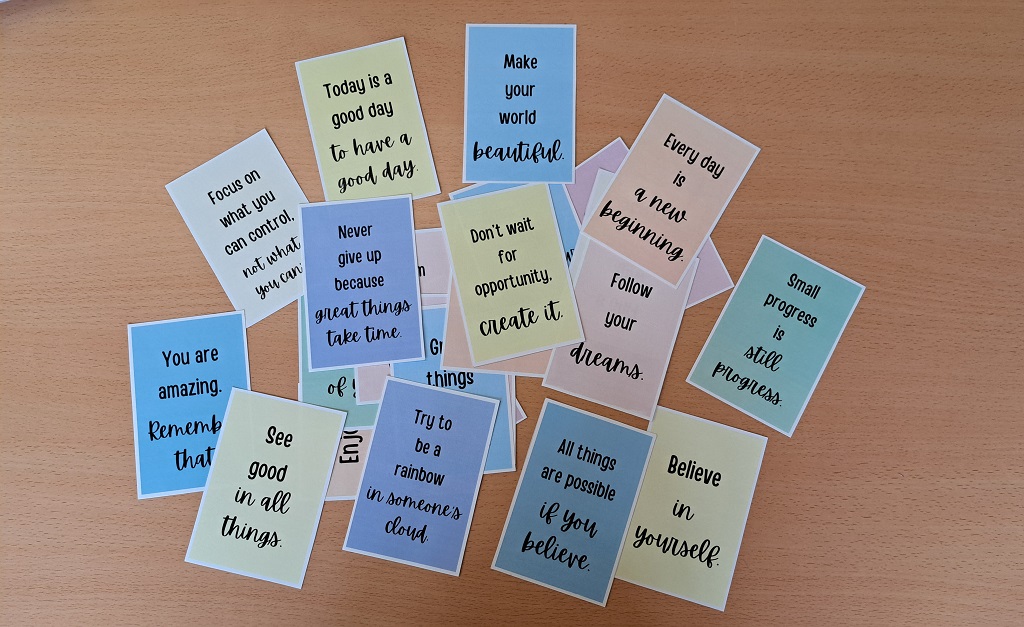 Make
your
world
beautiful.
Today is a
good day
to have a
good day.
Every day
is
a new
beginning.
Focus on
what you
can control,
not what
you can
Never
give up
because
great things
take time.
Don't wait
for
opportunity,
create it.
Follow
your
dreams.
Small
progress
is
still
progress.
You are
amazing.
Rememb
that
of
things
See
good
in all
things.
Enjo
Try to
be a
rainbow
in someone's
cloud.
All things
are possible
if you
believe.
Believe
in
yourself.